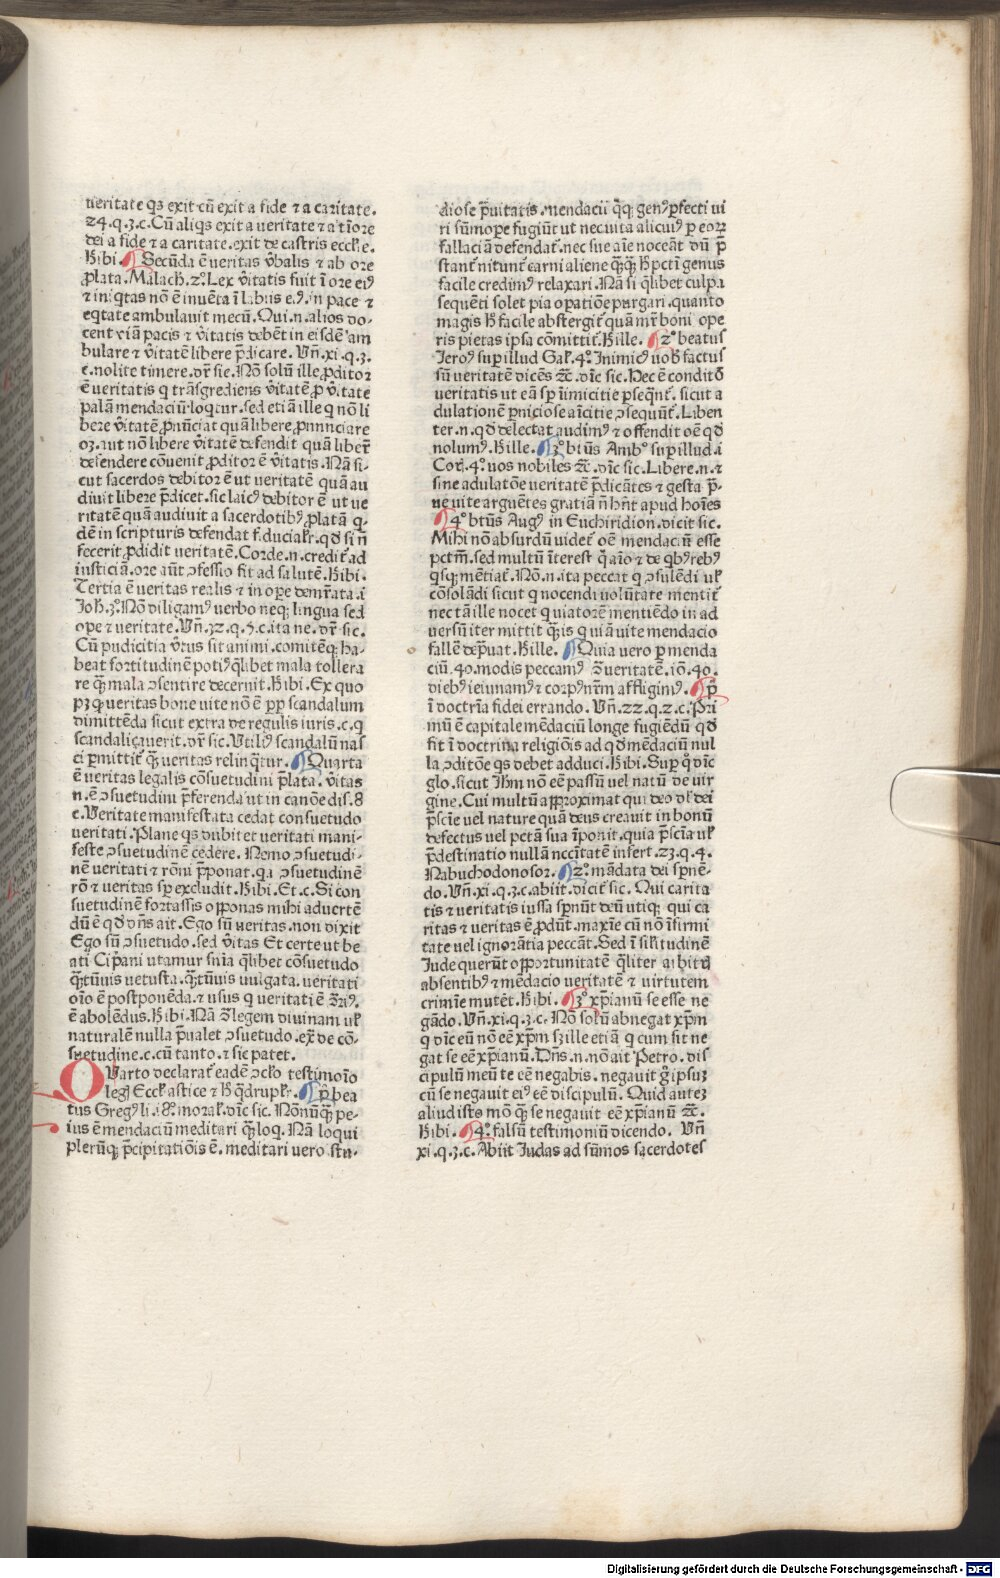 ueritate qꝫ exit cū exit a fide ⁊ a caritate.
24.q.3.c. Cū aliqs exit a veritate ⁊ a tīore
dei a fide ⁊ a caritate.exit de castris eccl'ie.
Hibi. Secūda ē veritas v̄balis ⁊ ab ore
ꝓlata. Malach.2.º Lex v̄itatis fuit ī ore eiꝰ
⁊ iniqtas nō ē invēta ī labiis eꝰ.in pace ⁊
eqtate ambulavit mecū. Qui.n.alios do-
cent viā pacis ⁊ v̄itatis debēt in eisdē am
bulare ⁊ v̄itatē libere p̄dicare. Vn̄.xi.q.3.
c.nolite timere.dr̄ sic. Nō solū ille ꝓditor
ē veritatis q trāsgrediens v̄itatē ꝓ v̄itate
palā mendaciū loqtur.sed etiā ille q nō li
bere v̄itatē ꝓnūciat quā libere ꝓnnnciare
oꝫ.aut nō libere v̄itatē defendit quā liber̄
defendere cōvenit ꝓditor ē v̄itatis. Nā si-
cut sacerdos debitor ē ut veritatē quā au
divit libere p̄dicet.sic laicꝰ debitor ē ut ve
ritatē quā audivit a sacerdotibꝰ ꝓlatā q-
dē in scripturis defendat f.ducialr̄.qd̄ si n̄
fecerit ꝓdidit veritatē. Corde.n.credit̄ ad
iusticiā.ore aūt ꝯfessio fit ad salutē. Hibi.
Tertia ē veritas realis ⁊ in oꝑe demr̄ata.i
Joh.3.º Nō diligamꝰ verbo neqꝫ lingua sed
oꝑe ⁊ veritate. Vn̄.32.q.5.c.ita ne.dr̄ sic.
Cū pudicitia v̄tus sit animi.comitēqꝫ ha-
beat fortitudinē potiꝰ qlibet mala tollera
re qꝫ mala ꝯsentire decernit. Hibi. Ex quo
pꝫ q veritas bone uite nō ē ꝓꝑ scandalum
dimittēda sicut extra de regulis iuris.c.q
scandaliçaverit.dr̄ sic. Vtiliꝰ scandalū nas
ci ꝑmittit̄ qꝫ veritas relinqtur. Quarta
ē veritas legalis cōsuetudini p̄lata. v̄itas
n.ē ꝯsuetudini p̄ferenda ut in canōe dis.8
c. Veritate manifestata cedat consuetudo
veritati. Plane qs dubitet veritati mani-
feste ꝯsuetudinē cedere. Nemo ꝯsuetudi-
nē veritati ⁊ rōni p̄ponat.qa ꝯsuetudinē
rō ⁊ veritas sꝑ excludit. Hibi. Et.c. Si con
suetudinē fortassis opponas mihi advertē
dū ē qd̄ dn̄s ait. Ego sū veritas.non dixit
Ego sū ꝯsuetudo.sed v̄itas Et certe ut be
ati Cip̄ani utamur sn̄ia qlibet cōsuetudo
qꝫtūvis vetusta.qꝫtūvis vulgata.veritati
oīo ē postponēda.⁊ usus q veritati ē ꝯ̄riꝰ.
ē abolēdus. Hibi. Nā ꝯ legem divinam ul'
naturalē nulla p̄ualet ꝯsuetudo.ex̄ de cō-
suetudine.c.cū tanto.⁊ sic patet.
QVarto declarat̄ eadē ꝯclo testimoīo
legꝫ Eccl'astice ⁊ h̄ qdruplr̄. pº bea
tus Gregꝰ li.18º.moral'.dīc sic. Nōnūqꝫ pe-
ius ē mendaciū meditari qꝫ loq. Nā loqui
plerūqꝫ p̄cipitatiōis ē.meditari vero stu-
diose p̄vitatis.mendacii qꝫqꝫ genꝰ ꝑfecti vi
ri sūmoꝑe fugiūt ut nec vita alicuiꝰ ꝑ eoꝝ
fallaciā defendat̄.nec sue aīe noceāt dū p̄
stant̄ nitunt̄ carni aliene qꝫqꝫ h̄ pctī genus
facile credimꝰ relaxari. Nā si qlibet culpa
sequēti solet pia oꝑatiōe purgari.quanto
magis h̄ facile abstergit̄ quā mr̄ boni ope
ris pietas ipsa cōmittit̄. Hille. 2º beatus
Jeroꝰ suꝑ illud Gal'.4º. Inimicꝰ uob̄ factus
sū veritatē dicēs ⁊c.dīc sic. Hec ē conditō
veritatis ut eā sꝑ īimicitie ꝑseqnt̄.sicut a
dulationē ꝑniciose aīcitie ꝯsequnt̄. Liben
ter.n.qd̄ delectat audimꝰ ⁊ offendit oē qd̄
nolumꝰ. Hille. 3º btūs Ambº suꝑ illud.i
Corꝫ.4º.vos nobiles ⁊c.dīc sic. Libere.n.⁊
sine adulatōe veritatē p̄dicātes ⁊ gesta p̄-
ve vite arguētes gratiā n̄ hn̄t apud hoīes
4º btūs Augꝰ in Euchiridion.dicit sic.
Mihi nō absurdū uidet̄ oē mendaciū esse
pctm̄.sed multū īterest q aīo ⁊ de qbꝰ rebꝰ
qsqꝫ mētiat̄. Nō.n.ita peccat q ꝯsulēdi ul'
cōsolādi sicut q nocendi volūtate mentit̄
nec tā ille nocet q viatorē mentiēdo in ad
versū iter mittit qꝫ is q viā uite mendacio
fallē dep̄vat. Hille. Quia vero ꝑ menda
ciū.40.modis peccamꝰ ꝯ veritatē.iō.40.
diebꝰ ieiunamꝰ ⁊ corpꝰ nr̄m affligimꝰ. pº
ī doctrīa fidei errando. Vn̄.22.q.2.c. Pri
mū ē capitale mēdaciū longe fugiēdū qd̄
fit ī doctrina religiōis ad qd̄ mēdaciū nul
la ꝯditōe qs debet adduci. Hibi. Suꝑ q dīc
glo.sicut Jhm̄ nō eē passū vel natū de vir
gine. Cui multū approximat qui deo vl' dei
p̄scīe vel nature quā deus creavit in bonū
defectus vel pctā sua īponit.quia p̄scīa ul'
p̄destinatio nullā nccītatē infert.23.q.4.
Nabuchodonosor. 2º.mādata dei sꝑnē-
do. Vn̄.xi.q.3.c.abiit.dicit̄ sic. Qui carita
tis ⁊ veritatis iussa sꝑnūt deū utiqꝫ qui ca
ritas ⁊ veritas ē ꝓdūt.maxīe cū nō īfirmi
tate vel ignorātia peccāt. Sed ī sil'itudinē
Jude querūt opportunitatē qliter arbitꝝ
absentibꝰ ⁊ mēdacio veritatē ⁊ virtutem
crimīe mutēt. Hibi. 3º xp̄ianū se esse ne
gādo. Vn̄.xi.q.3.c. Nō solū abnegat xp̄m
q dīc eū nō eē xp̄m sꝫ ille etiā q cum sit ne
gat se eē xp̄ianū. Dn̄s.n.nō ait Petro.dis
cipulū meū te eē negabis.negavit ḡ ipsuꝫ
cū se negavit eiꝰ eē discipulū. Quid auteꝫ
aliud ists mō qꝫ se negavit eē xp̄ianū ⁊c.
Hibi. 4º.falsū testimoniū dicendo. Vn̄
xi.q.3.c. Abiit Judas ad sūmos sacerdotes
Digitalisierung gefördert durch die Deutsche Forschungsgemeinschaft - DFG